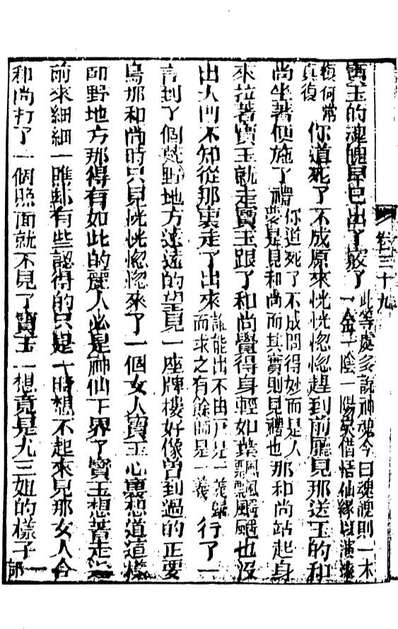 卷三十九
寶玉的魂魄早已出了竅了此等處多說神魂今曰魂魄則一木
一金一陰一陽矣借悟仙緣以演
復何常
真復
你道死了不成原來恍恍惚惚趕到前廳見那送玉的和
尚坐著便施了禮你道死了不成問得妙而是人
要是見和尚而其實則見禮也那和尚站起身
來拉著寶玉就走寶玉跟了和尚覺得身輕如葉飄飄颻颻也沒
出大門不知從那裏走了出來誰能出不由戶是一義
而求之有餘師是一義行了一
到了個荒野地方遠遠的望見一座牌樓好像曾到過的正要
那和尚時只見恍恍惚惚來了一個女人寶玉心裏想道這樣
野地方那得有如此的麗人必是神仙下界了寶玉想著走近
前來細細一瞧却有些認得的只是一時想不起來見那女人合
和尚打了一個照面就不見了寶玉一想竟是尤三姐的樣子